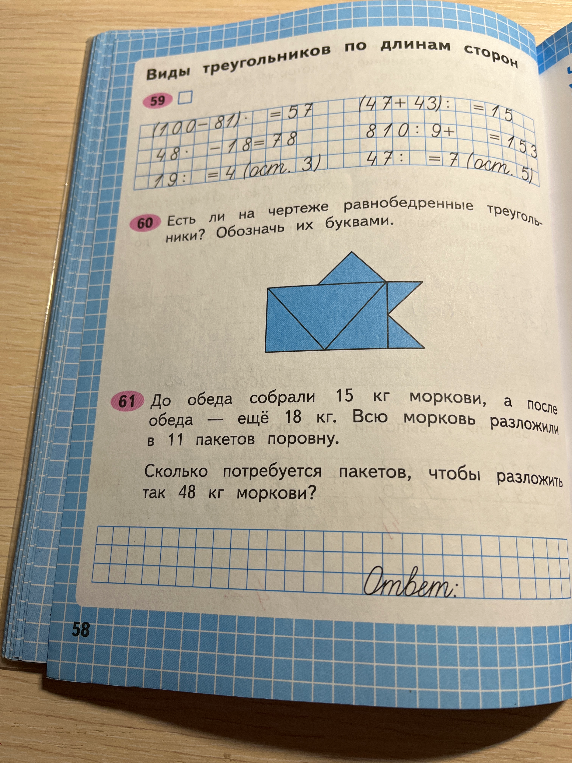 Виды треугольников по длинам сторон
59
(100-81)· =57 (47+43): =15
48· -18=78 810:9+ =153
19: =4 (ост. 3) 47: =7 (ост. 5)
60 Есть ли на чертеже равнобедренные треуголь-
ники? Обозначь их буквами.
61 До обеда собрали 15 кг моркови, а после
обеда — ещё 18 кг. Всю морковь разложили
в 11 пакетов поровну.
Сколько потребуется пакетов, чтобы разложить
так 48 кг моркови?
Ответ:
58